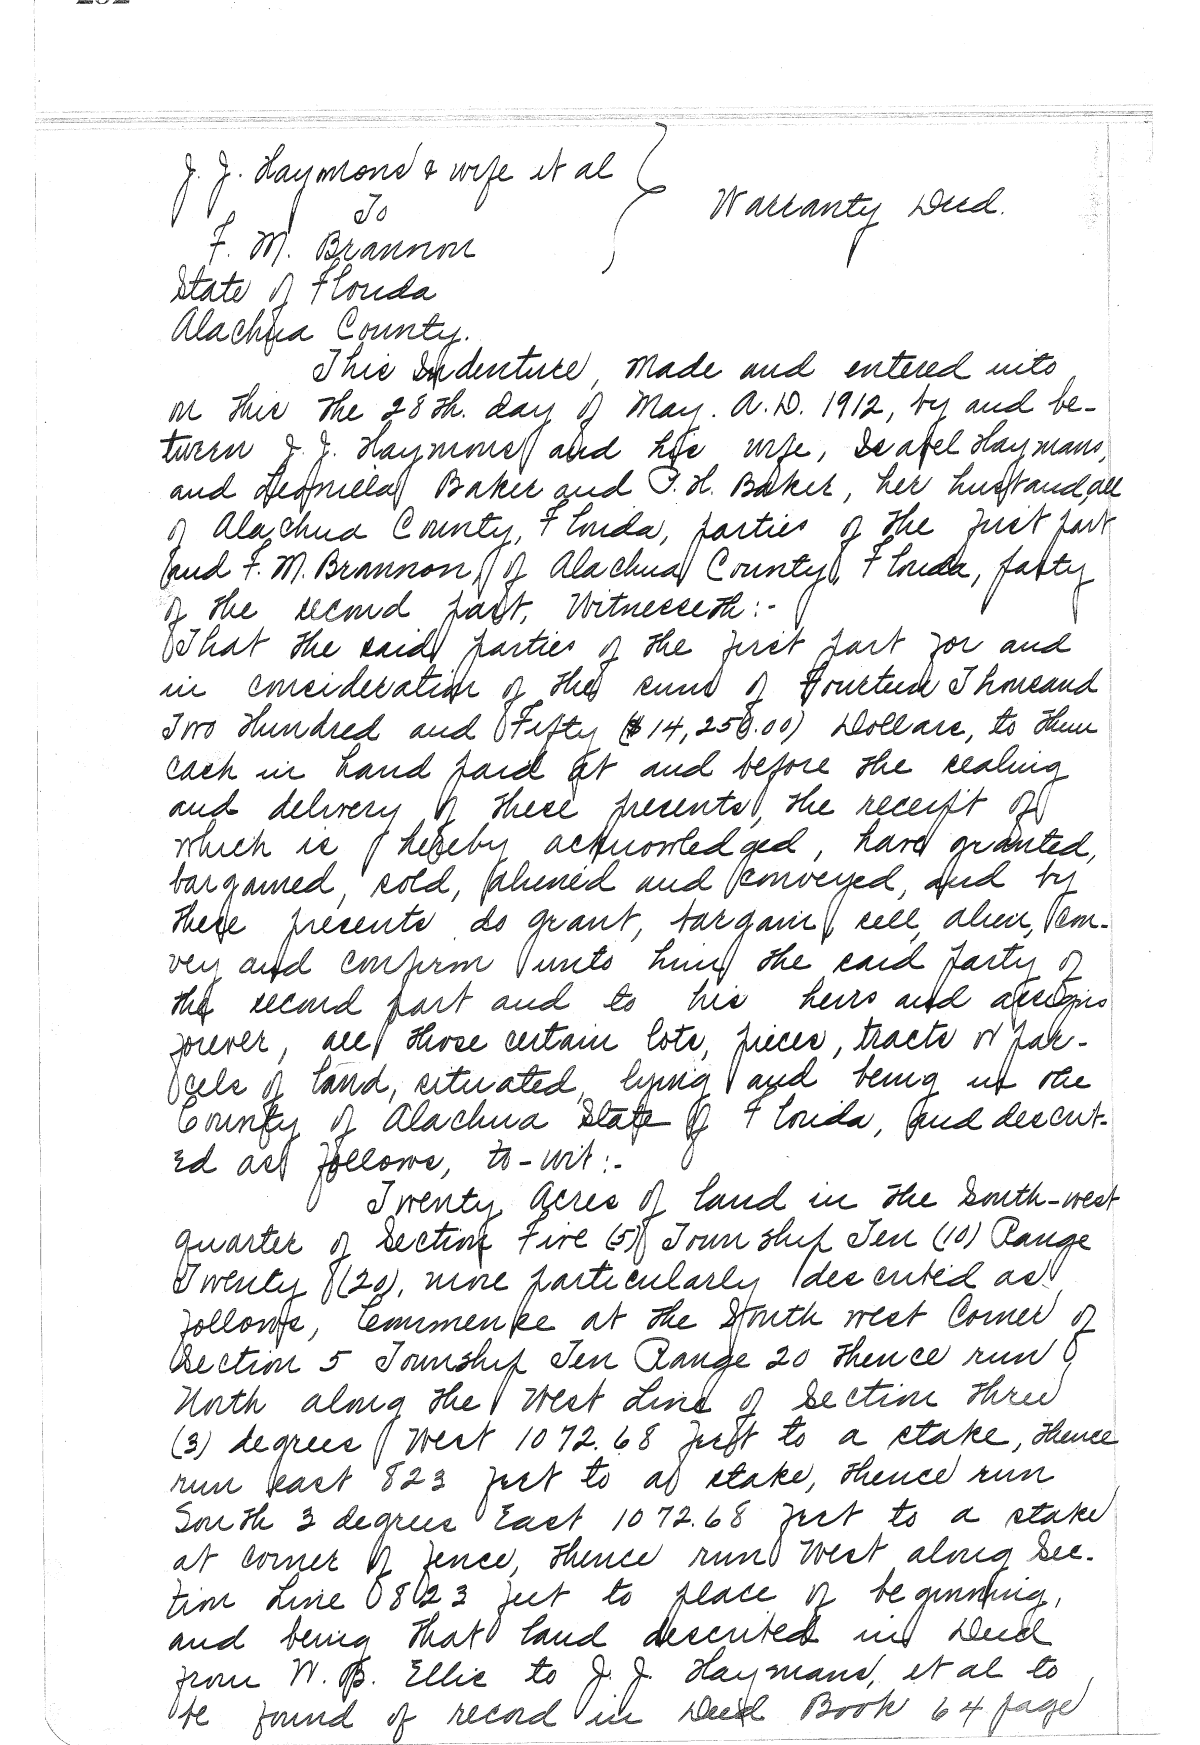 J. J. Haymond & wife et al
To
Warranty Deed.
F. M. Brannon
State of Florida
Alachua County.
This Indenture, Made and entered into
on this the 28th. day of May. A.D. 1912, by and be-
tween J. J. Haymans and his wife, Isabel Haymans,
and Leonilla Baker and P. H. Baker, her husband, all
of Alachua County, Florida, parties of the first part
and F. M. Brannon, of Alachua County, Florida, party
of the second part, Witnesseth:-
That the said parties of the first part for and
in consideration of the sum of Fourteen Thousand
Two Hundred and Fifty ($14,250.00) Dollars, to them
cash in hand paid at and before the sealing
and delivery of these presents, the receipt of
which is hereby acknowledged, have granted,
bargained, sold, aliened and conveyed, and by
these presents do grant, bargain, sell, alien, con-
vey and confirm unto him the said party of
the second part and to his heirs and assigns
forever, all those certain lots, pieces, tracts or par-
cels of land, situated, lying and being in the
County of Alachua State of Florida, and describ-
ed as follows, to-wit:-
Twenty Acres of land in the South-west
quarter of Section Five (5) Township Ten (10) Range
Twenty (20), more particularly described as
follows, Commence at the South west Corner of
Section 5 Township Ten Range 20 thence run
North along the West Line of Section three
(3) degrees West 1072.68 feet to a stake, thence
run east 823 feet to a stake, thence run
South 3 degrees East 1072.68 feet to a stake
at corner of fence, thence run West along Sec-
tion Line 823 feet to place of beginning,
and being that land described in Deed
from W. B. Ellis to J. J. Haymans, et al to
be found of record in Deed Book 64 page